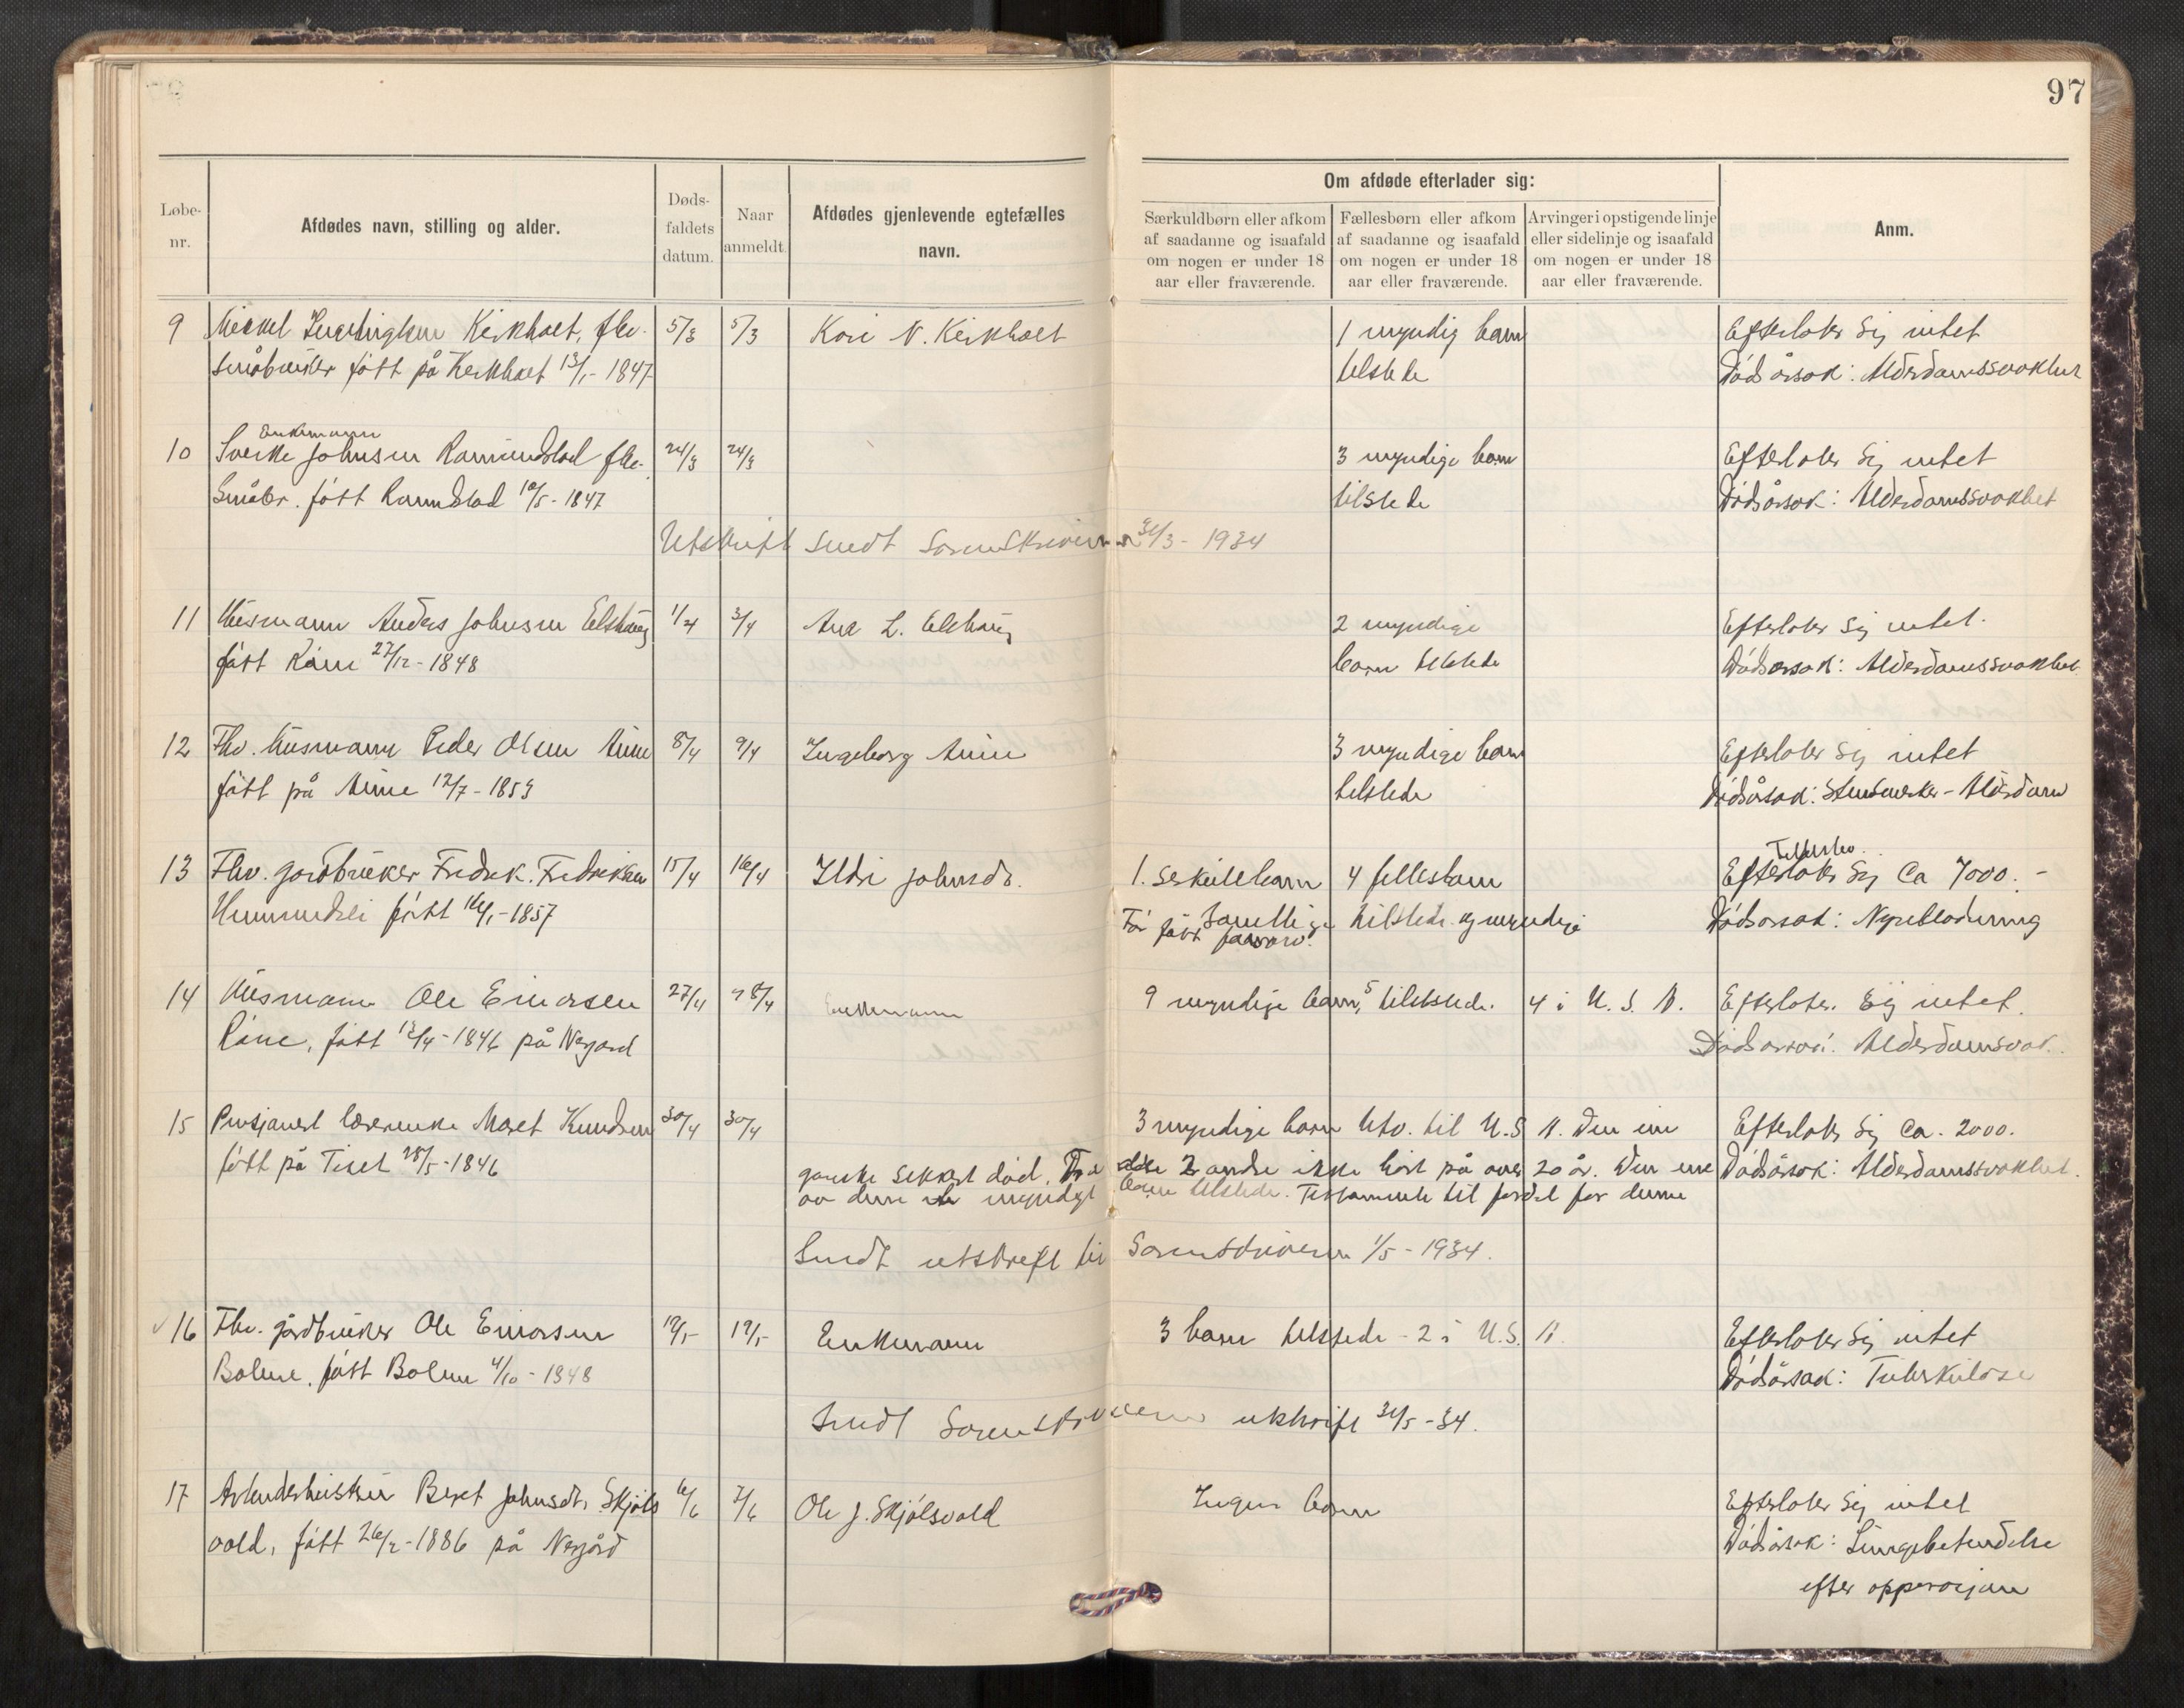 97
Løbe-
nr.
Afdødes navn, stilling og alder.
Døds-
faldets
datum.
Naar
anmeldt.
Afdødes gjenlevende egtefælles
navn.
Om afdøde efterlader sig:
Særkuldbørn eller afkom
af saadanne og isaafald
om nogen er under 18
aar eller fraværende.
Fællesbørn eller afkom
af saadanne og isaafald
om nogen er under 18
aar eller fraværende.
Arvinger i opstigende linje
eller sidelinje og isaafald
om nogen er under 18
aar eller fraværende.
Anm.
9 Kirkholt, fhv. 5/3 5/3 Kari N. Kirkholt 1 myndig barn Efterlater sig intet
småbruker født på Kirkholt 13/1-1847 tilstede Dødsårsak: Alderdomssvakhet
Enkemann
10 Sverke Johnsen Ramundstad fhv. 24/3 24/3 3 myndige barn Efterlater sig intet
Småbr. født Ramndstad 10/5-1847 tilstede Dødsårsak: Alderdomssvakhet
Utskrift sendt Sorenskriveren 31/3-1934
11 Husmann Anders Johnsen Elshaug 1/4 3/4 Ane L. Elshaug 2 myndige Efterlater sig intet.
født Råne 27/12-1848 barn tilstede Dødsårsak: Alderdomssvakhet
12 Fhv. husmann Peder Olsen Aune 8/4 9/4 Ingeborg Aune 3 myndige barn Efterlater sig intet
født på Aune 12/7-1853 tilstede Dødsårsak: - Alderdom
13 Fhv. gardbruker Fredrik Fredriksen 15/4 16/4 Ildri Johnsdt. 1. serkulebarn 4 fellesbarn Efterlater sig Ca 7000.-
født 16/1-1857 Før født farsarv. Samtlige tilstede og myndige Dødsårsak: Nyreblødning
14 Husmann Ole Einarsen 27/4 28/4 Enkemann 9 myndige barn, 5 tilstede. 4 i U.S.A. Efterlater sig intet.
Råne, født 12/4-1846 på Nergard Dødsårsak: Alderdomsvak.
15 Pensjonert lærerenke Maret Knudsen 30/4 30/4 3 myndige barn utv. til U.S.A. Den ene Efterlater sig Ca. 2000.
født på Tiset 28/5-1846 ganske sikkert død, De 2 andre ikke hørt på over 20 år. Den ene Dødsårsak: Alderdomssvakhet.
av dem myndigt barn tilstede. Testamente til fordel for denne
Sendt utskrift til Sorenskriveren 1/5-1934.
16 Fhv. gårdbruker Ole Einarsen 19/5 19/5 Enkemann 3 barn tilstede - 2 i U.S.A. Efterlater sig intet
Bolme, født Bolme 4/10-1848 Dødsårsak: Tuberkulose
Sendt Sorenskriveren utskrift 31/5-34.
17 Arbeiderhustru Beret Johnsdt. Skjøls 6/6 7/6 Ole J. Skjølsvold Ingen barn Efterlater sig intet
vold, født 26/2-1886 på Nergård Dødsårsak: Lungebetendelse
efter opperasjon